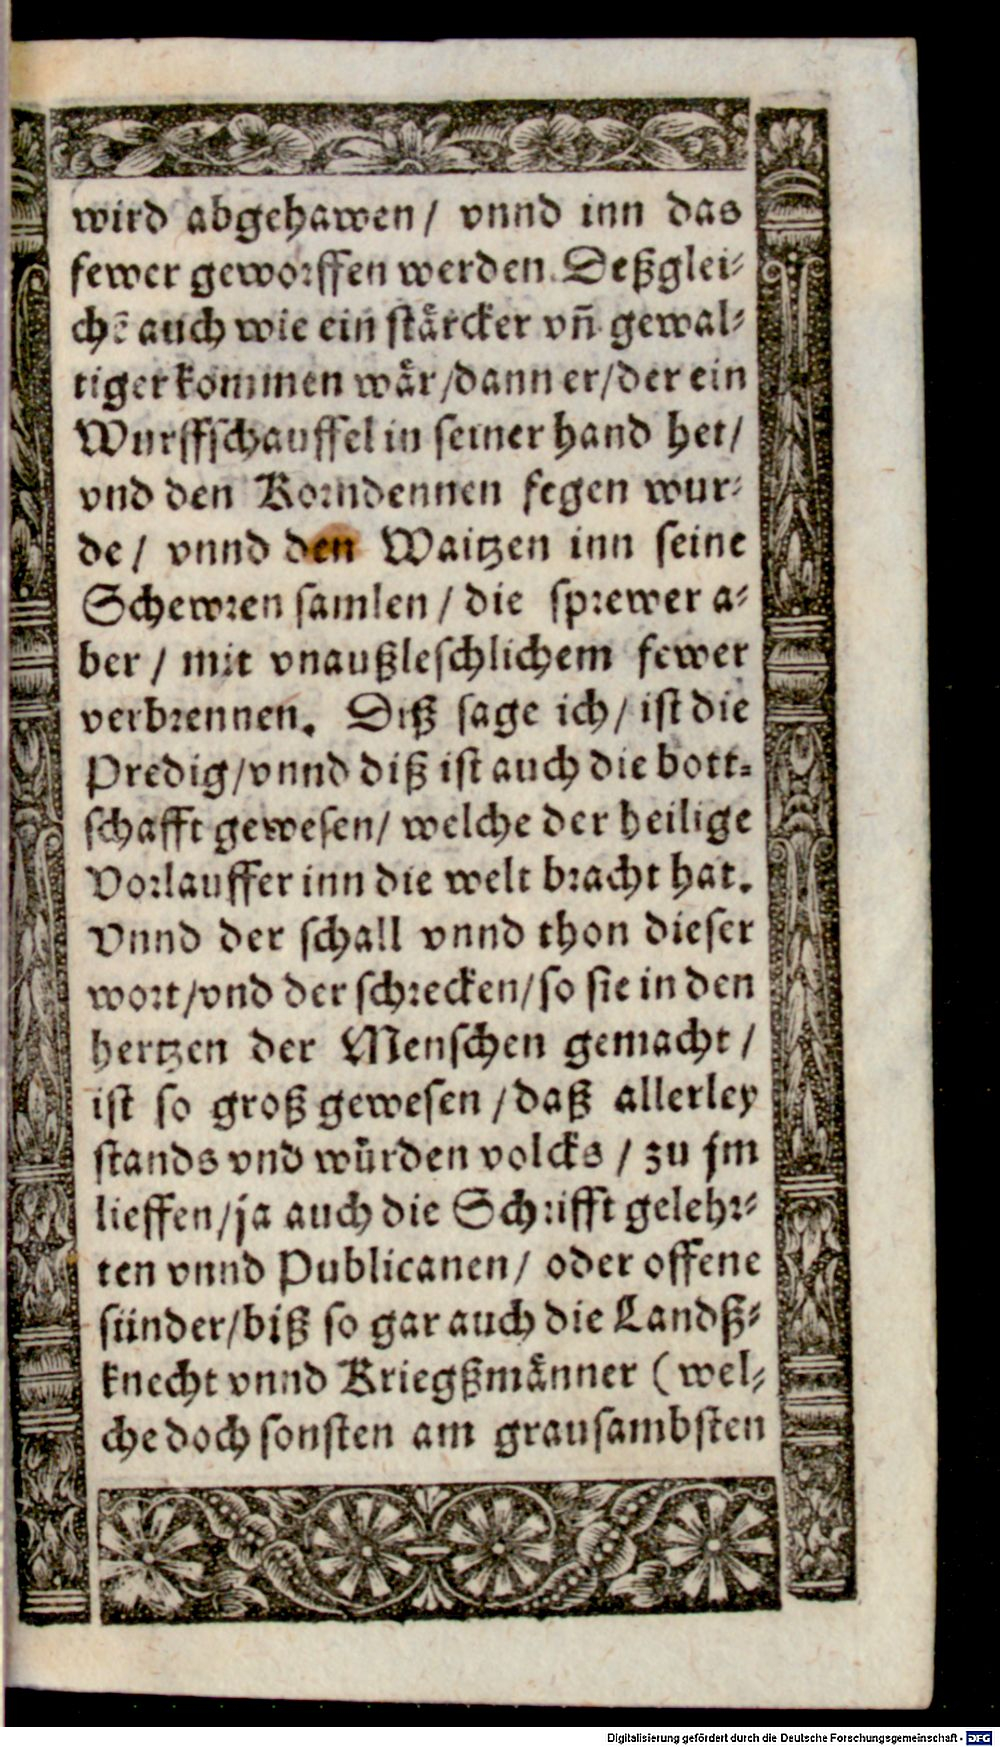 wird abgehawen / vnnd inn das
fewer geworffen werden. Deßglei⸗
chē auch wie ein stärcker vñ gewal⸗
tiger kommen wär / dann er / der ein
Wurffschauffel in seiner hand het /
vnd den Korndennen fegen wur⸗
de / vnnd den Waitzen inn seine
Schewren samlen / die sprewer a⸗
ber / mit vnaußleschlichem fewer
verbrennen. Diß sage ich / ist die
Predig / vnnd diß ist auch die bott⸗
schafft gewesen / welche der heilige
Vorlauffer inn die welt bracht hat.
Vnnd der schall vnnd thon dieser
wort / vnd der schrecken / so sie in den
hertzen der Menschen gemacht /
ist so groß gewesen / daß allerley
stands vnd würden volcks / zu jm
lieffen / ja auch die Schrifft gelehr⸗
ten vnnd Publicanen / oder offene
sünder / biß so gar auch die Landß⸗
knecht vnnd Kriegßmänner ( wel⸗
che doch sonsten am grausambsten
Digitalisierung gefördert durch die Deutsche Forschungsgemeinschaft - DFG